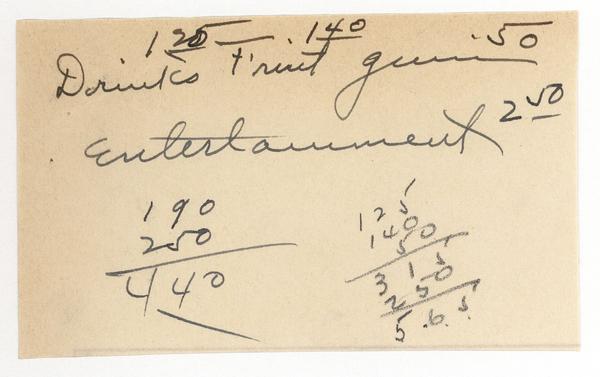 1 25 — . 1 40 . 50
Drinks Fruit gum
Entertainment 2 50
1 9 0
2 5 0
4 4 0
1 2 5
1 4 0
5 0
3 1 5
2 5 0
5 . 6 . 5